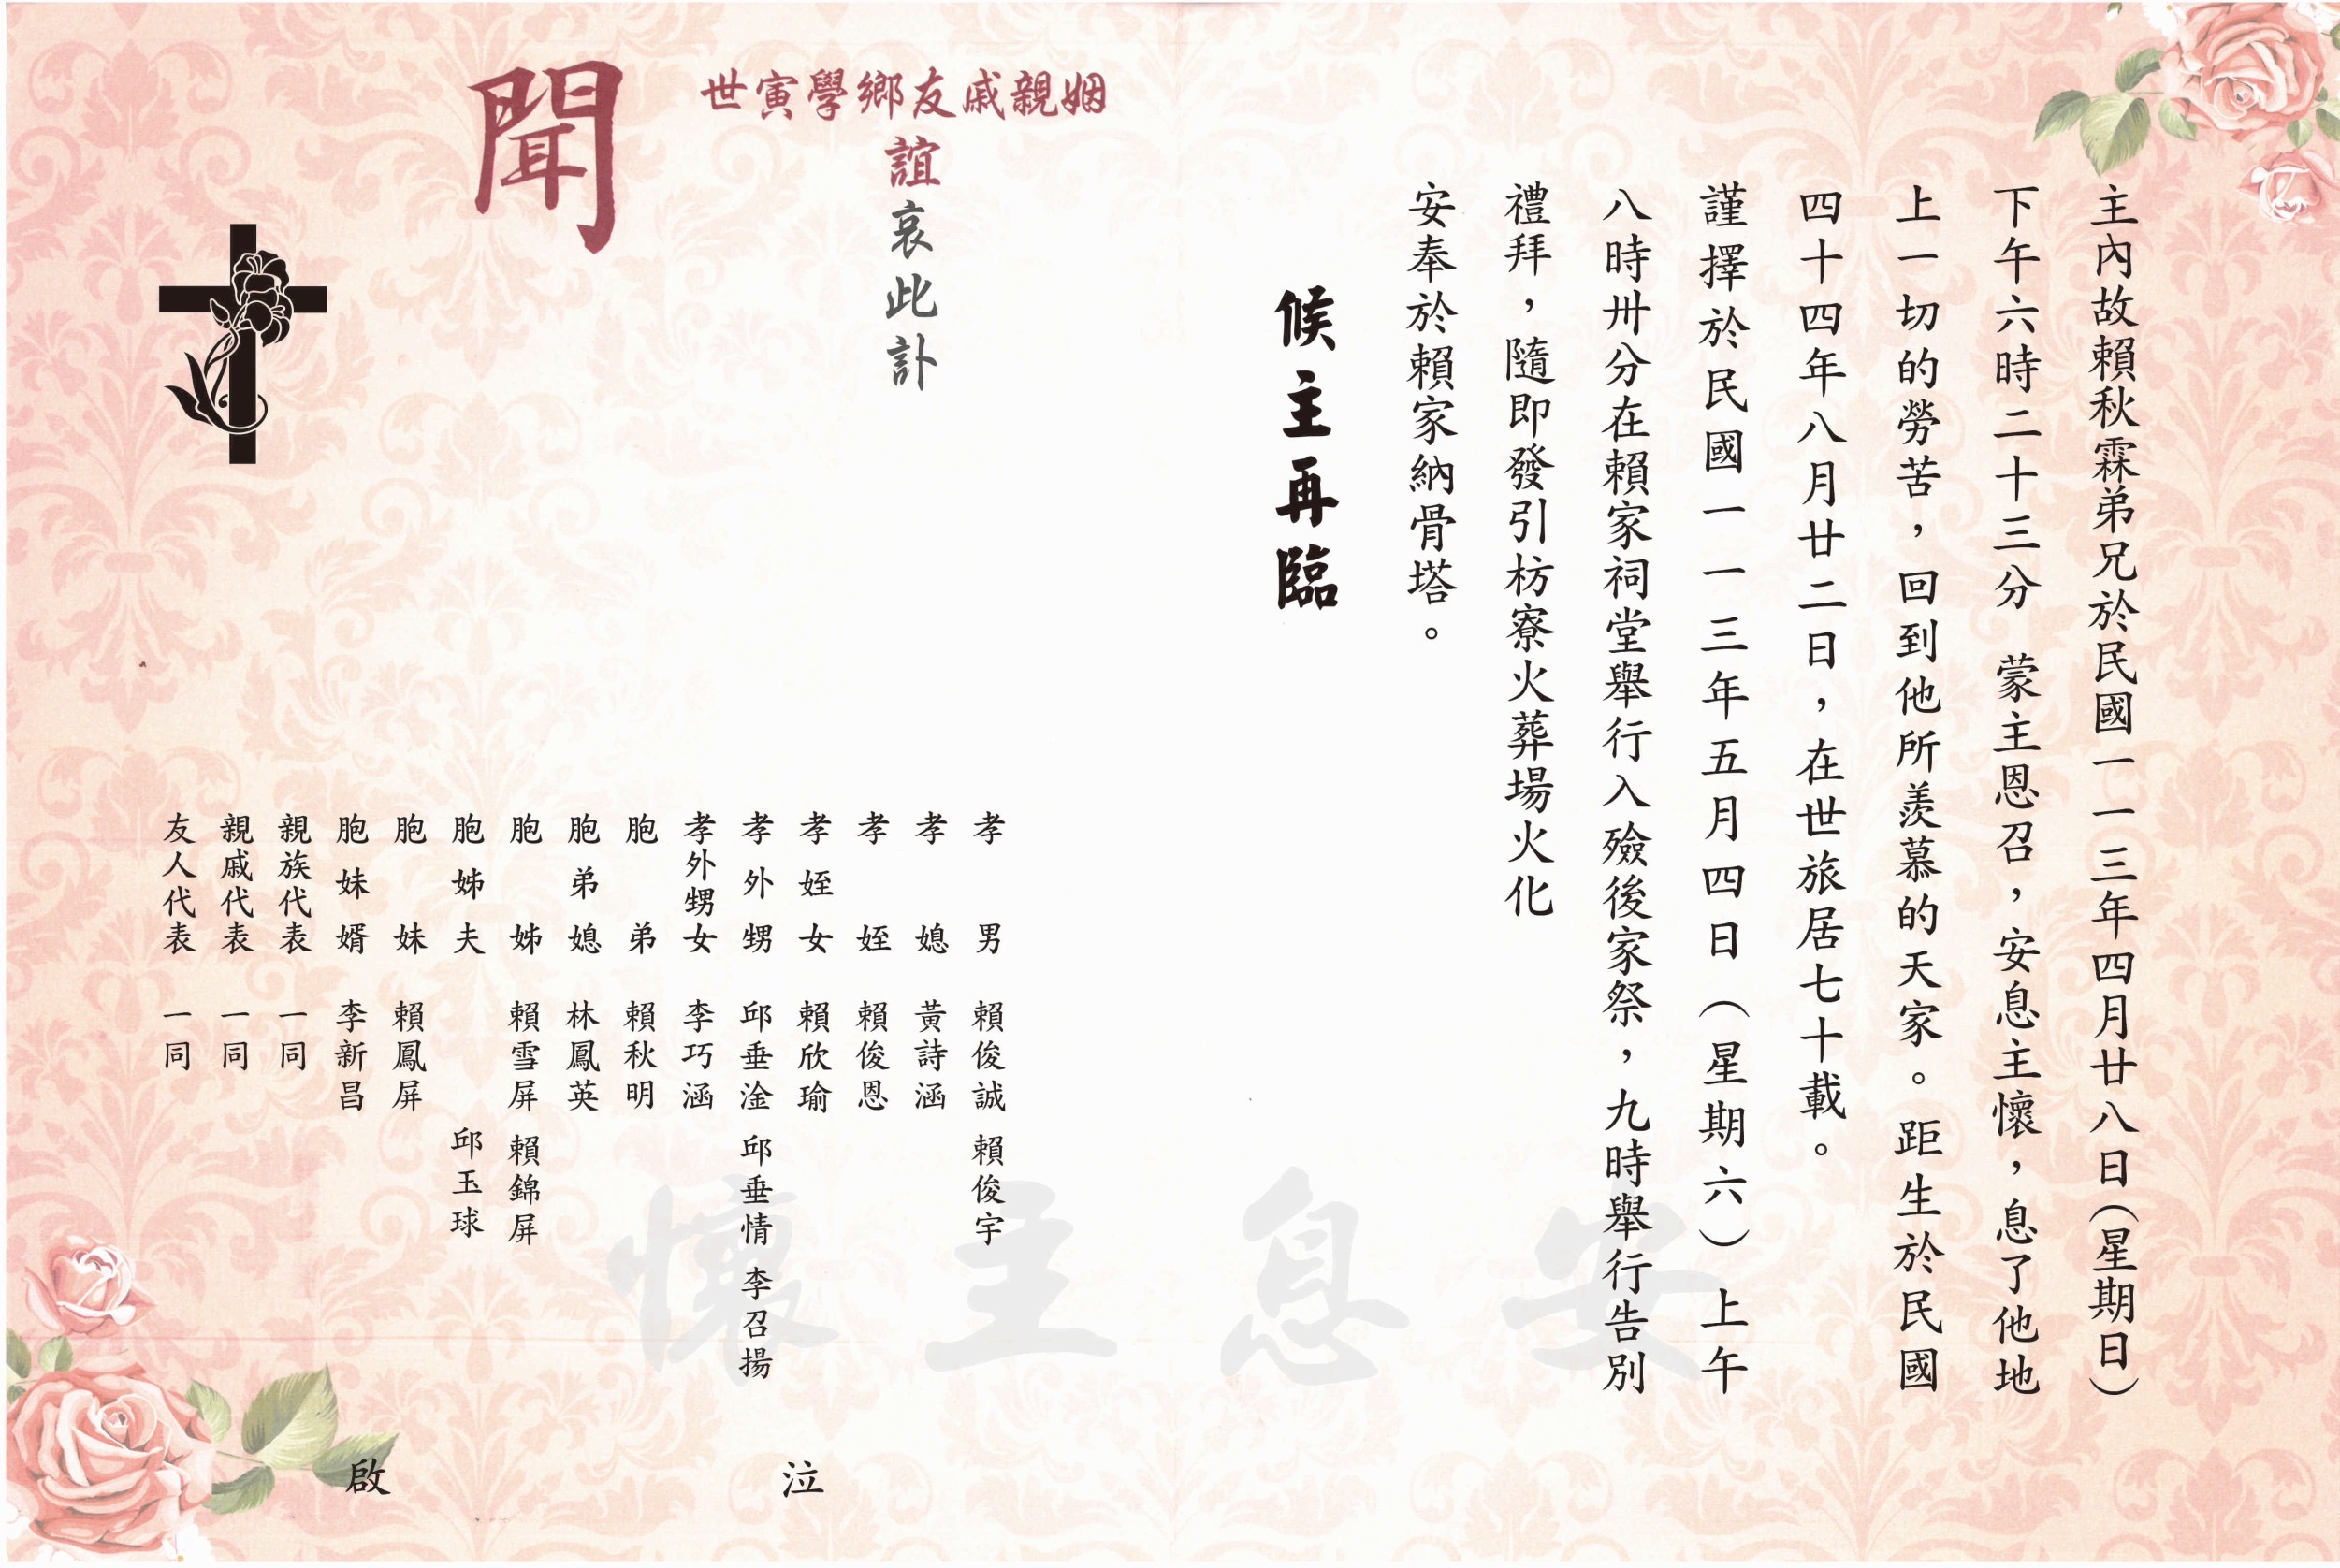 主內故賴秋霖弟兄於民國一一三年四月廿八日(星期日)
下午六時二十三分　蒙主恩召，安息主懷，息了他地
上一切的勞苦，回到他所羨慕的天家。距生於民國
四十四年八月廿二日，在世旅居七十載。
謹擇於民國一一三年五月四日(星期六)上午
八時卅分在賴家祠堂舉行入殮後家祭，九時舉行告別
禮拜，隨即發引枋寮火葬場火化
安奉於賴家納骨塔。
候主再臨
姻親戚友鄉學寅世
誼哀此訃
聞
孝男 賴俊誠 賴俊宇
孝媳 黃詩涵
孝姪 賴俊恩
孝姪女 賴欣瑜
孝外甥 邱垂淦 邱垂情 李召揚
孝外甥女 李巧涵
胞弟 賴秋明
胞弟媳 林鳳英
胞姊 賴雪屏 賴錦屏
胞姊夫 邱玉球
胞妹 賴鳳屏
胞妹婿 李新昌
親族代表 一同
親戚代表 一同
友人代表 一同
泣啟
安息主懷